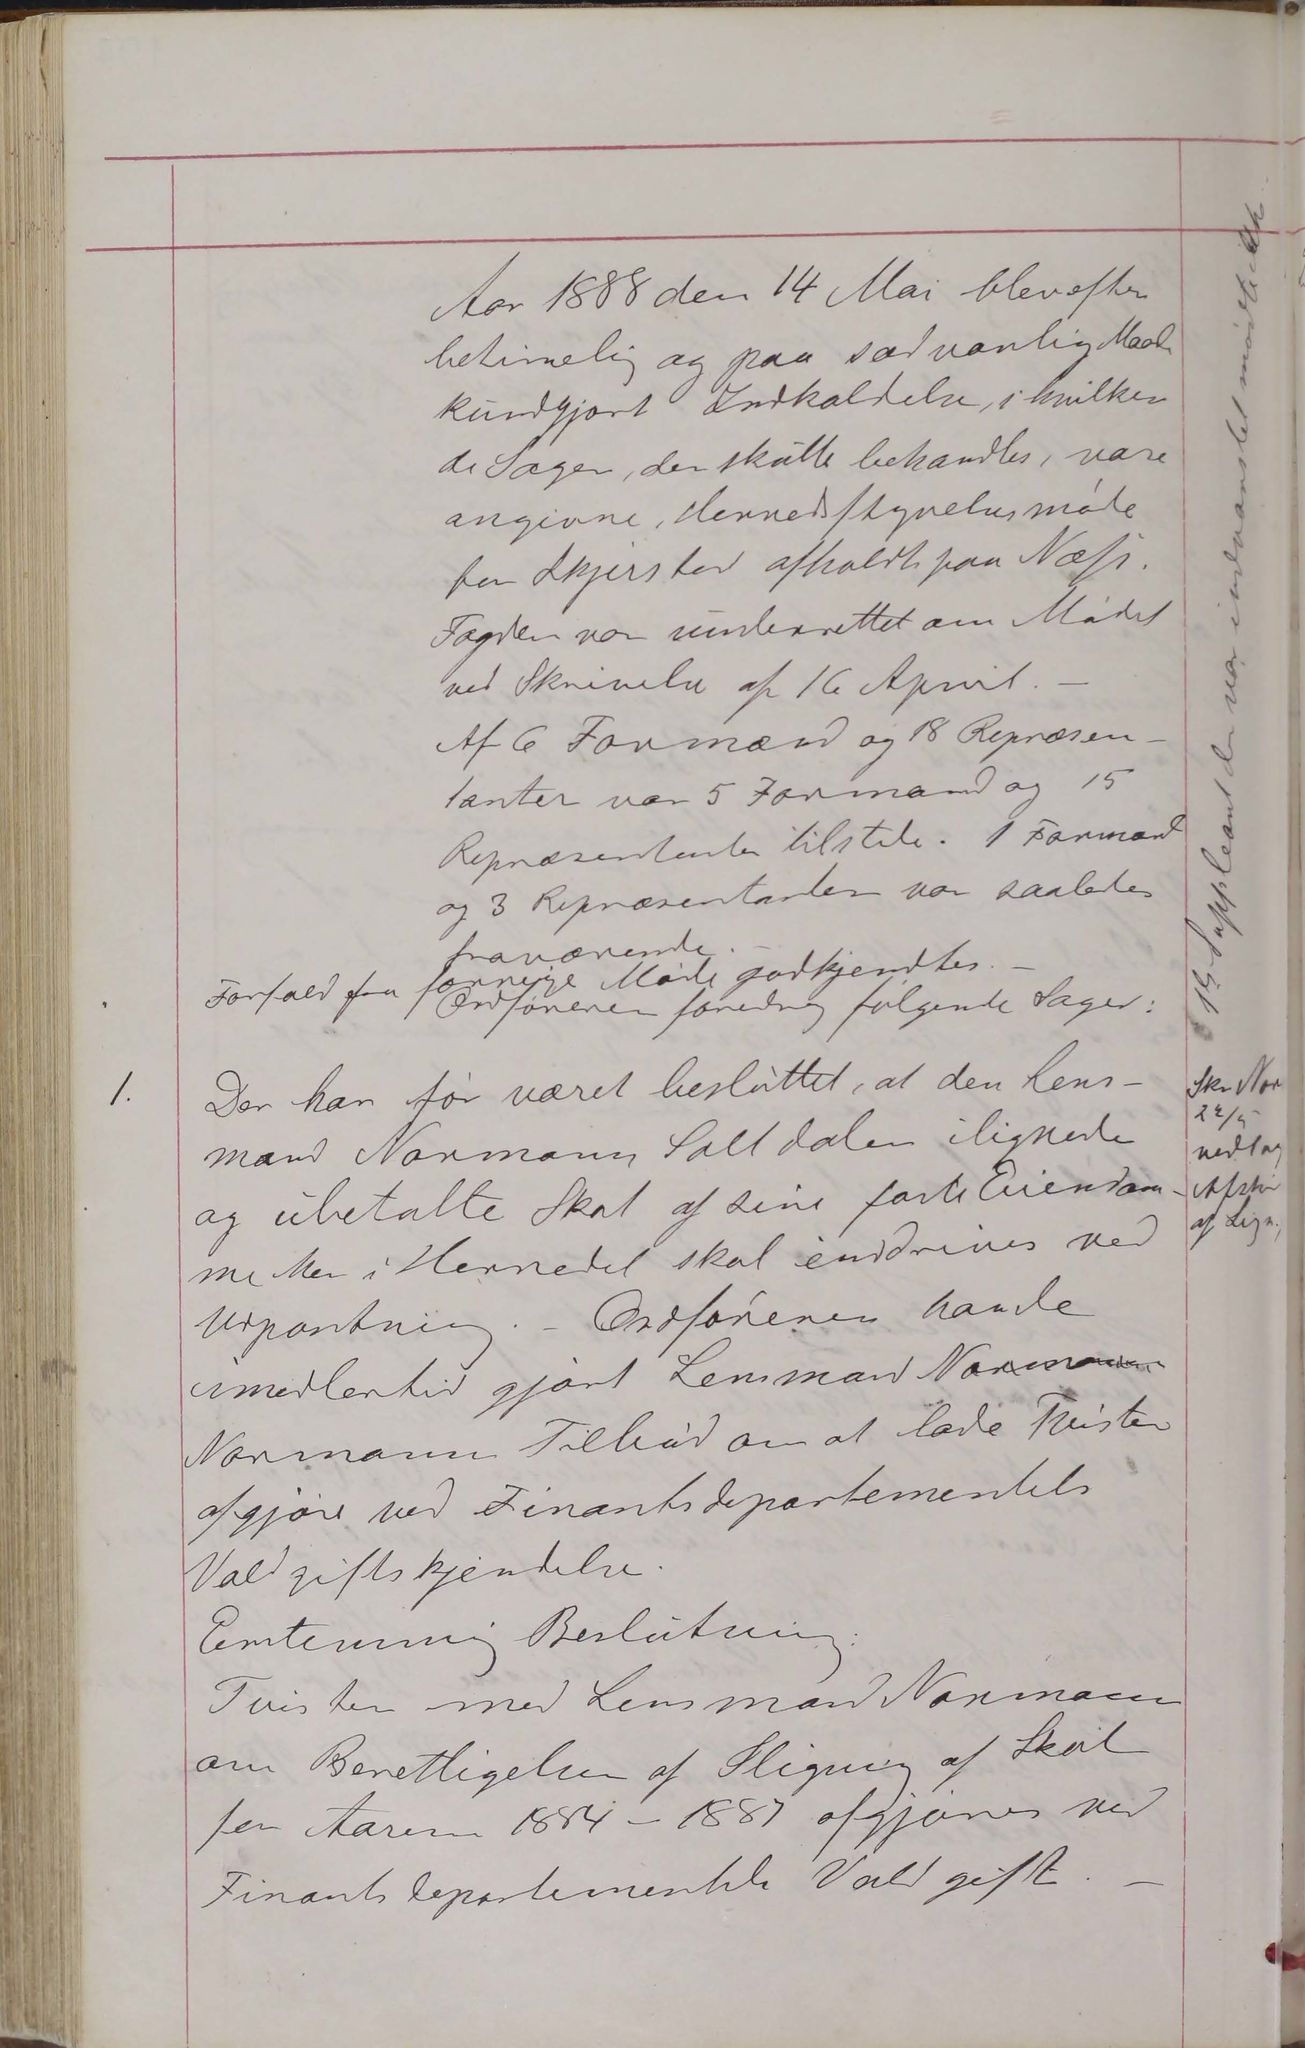 Aar 1888 den 14 Mai blev efter
betimelig og paa sædvanlig Maade
kundgjort Indkaldelse, i hvilken
de Sager, der skulle behandles, vare
angivne, Herredsstyrelsesmøde
for Skjerstad afholdt paa Næss.
Fogden var underrettet om Mødet
ved Skrivelse af 16 April. —
Af 6 Formænd og 18 Repræsen-
tanter var 5 Formænd og 15
Repræsentanter tilstede. 1 Formand
og 3 Repræsentanter var saaledes
fraværende. —
Forfald fra forrige Møde godkjendtes. —
Ordføreren foredrog følgende Sager:
1.
Der har før været besluttet, at den Lens-
mand Normann Saltdalen ilignede
og ubetalte Skat af sine faste Eiendom-
me her i Herredet skal inddrives ved
Udpantning. – Ordføreren havde
imidlertid gjort Lensmand Normann
Normann Tilbud om at lade Tvisten
afgjøre ved Finantsdepartementets
Voldgiftskjendelse.
Enstemmig Beslutning:
Tvisten med Lensmand Normann
om Berettigelsen af Iligning af Skat
for Aarene 1884 – 1887 afgjøres ved
Finantsdepartementets Voldgift. —
Skr Nor
22/5
vedlag
Afskr
af Lign.
Suppleant der var indvarslet mødte ikke